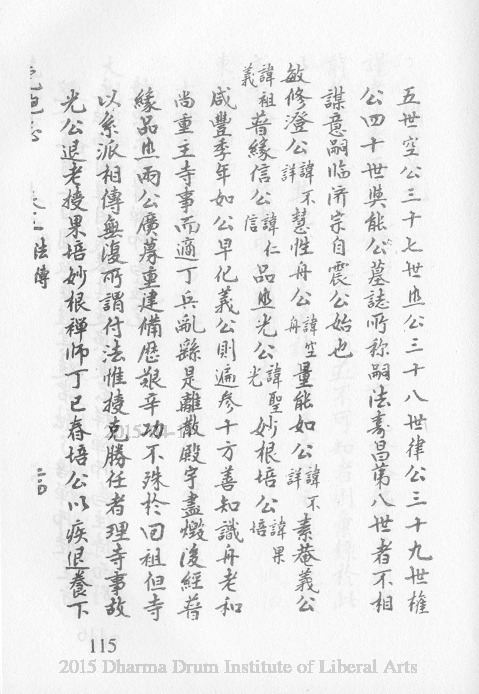 五世空公三十七世此公三十八世律公三十九世權
公四十世與能公墓誌所称嗣法壽昌第八世者不相
謀意嗣临济宗自震公始也
敏修澄公諱不詳慧性舟公諱空舟量能如公諱不詳素菴義公
諱祖義普緣信公諱仁信品照光公諱聖光妙根培公諱果培
咸豐季年如公早化義公則遍參十方善知識舟老和
尚重主寺事而適丁兵亂繇是離散殿宇盡燬後經普
緣品照兩公廣募重建備歷艱辛功不殊於回祖但寺
以系派相傳無復所謂付法惟擇克勝任者理寺事故
光公退老授果培妙根禪師丁巳春培公以疾退養下
法傳
115
2015 Dharma Drum Institute of Liberal Arts